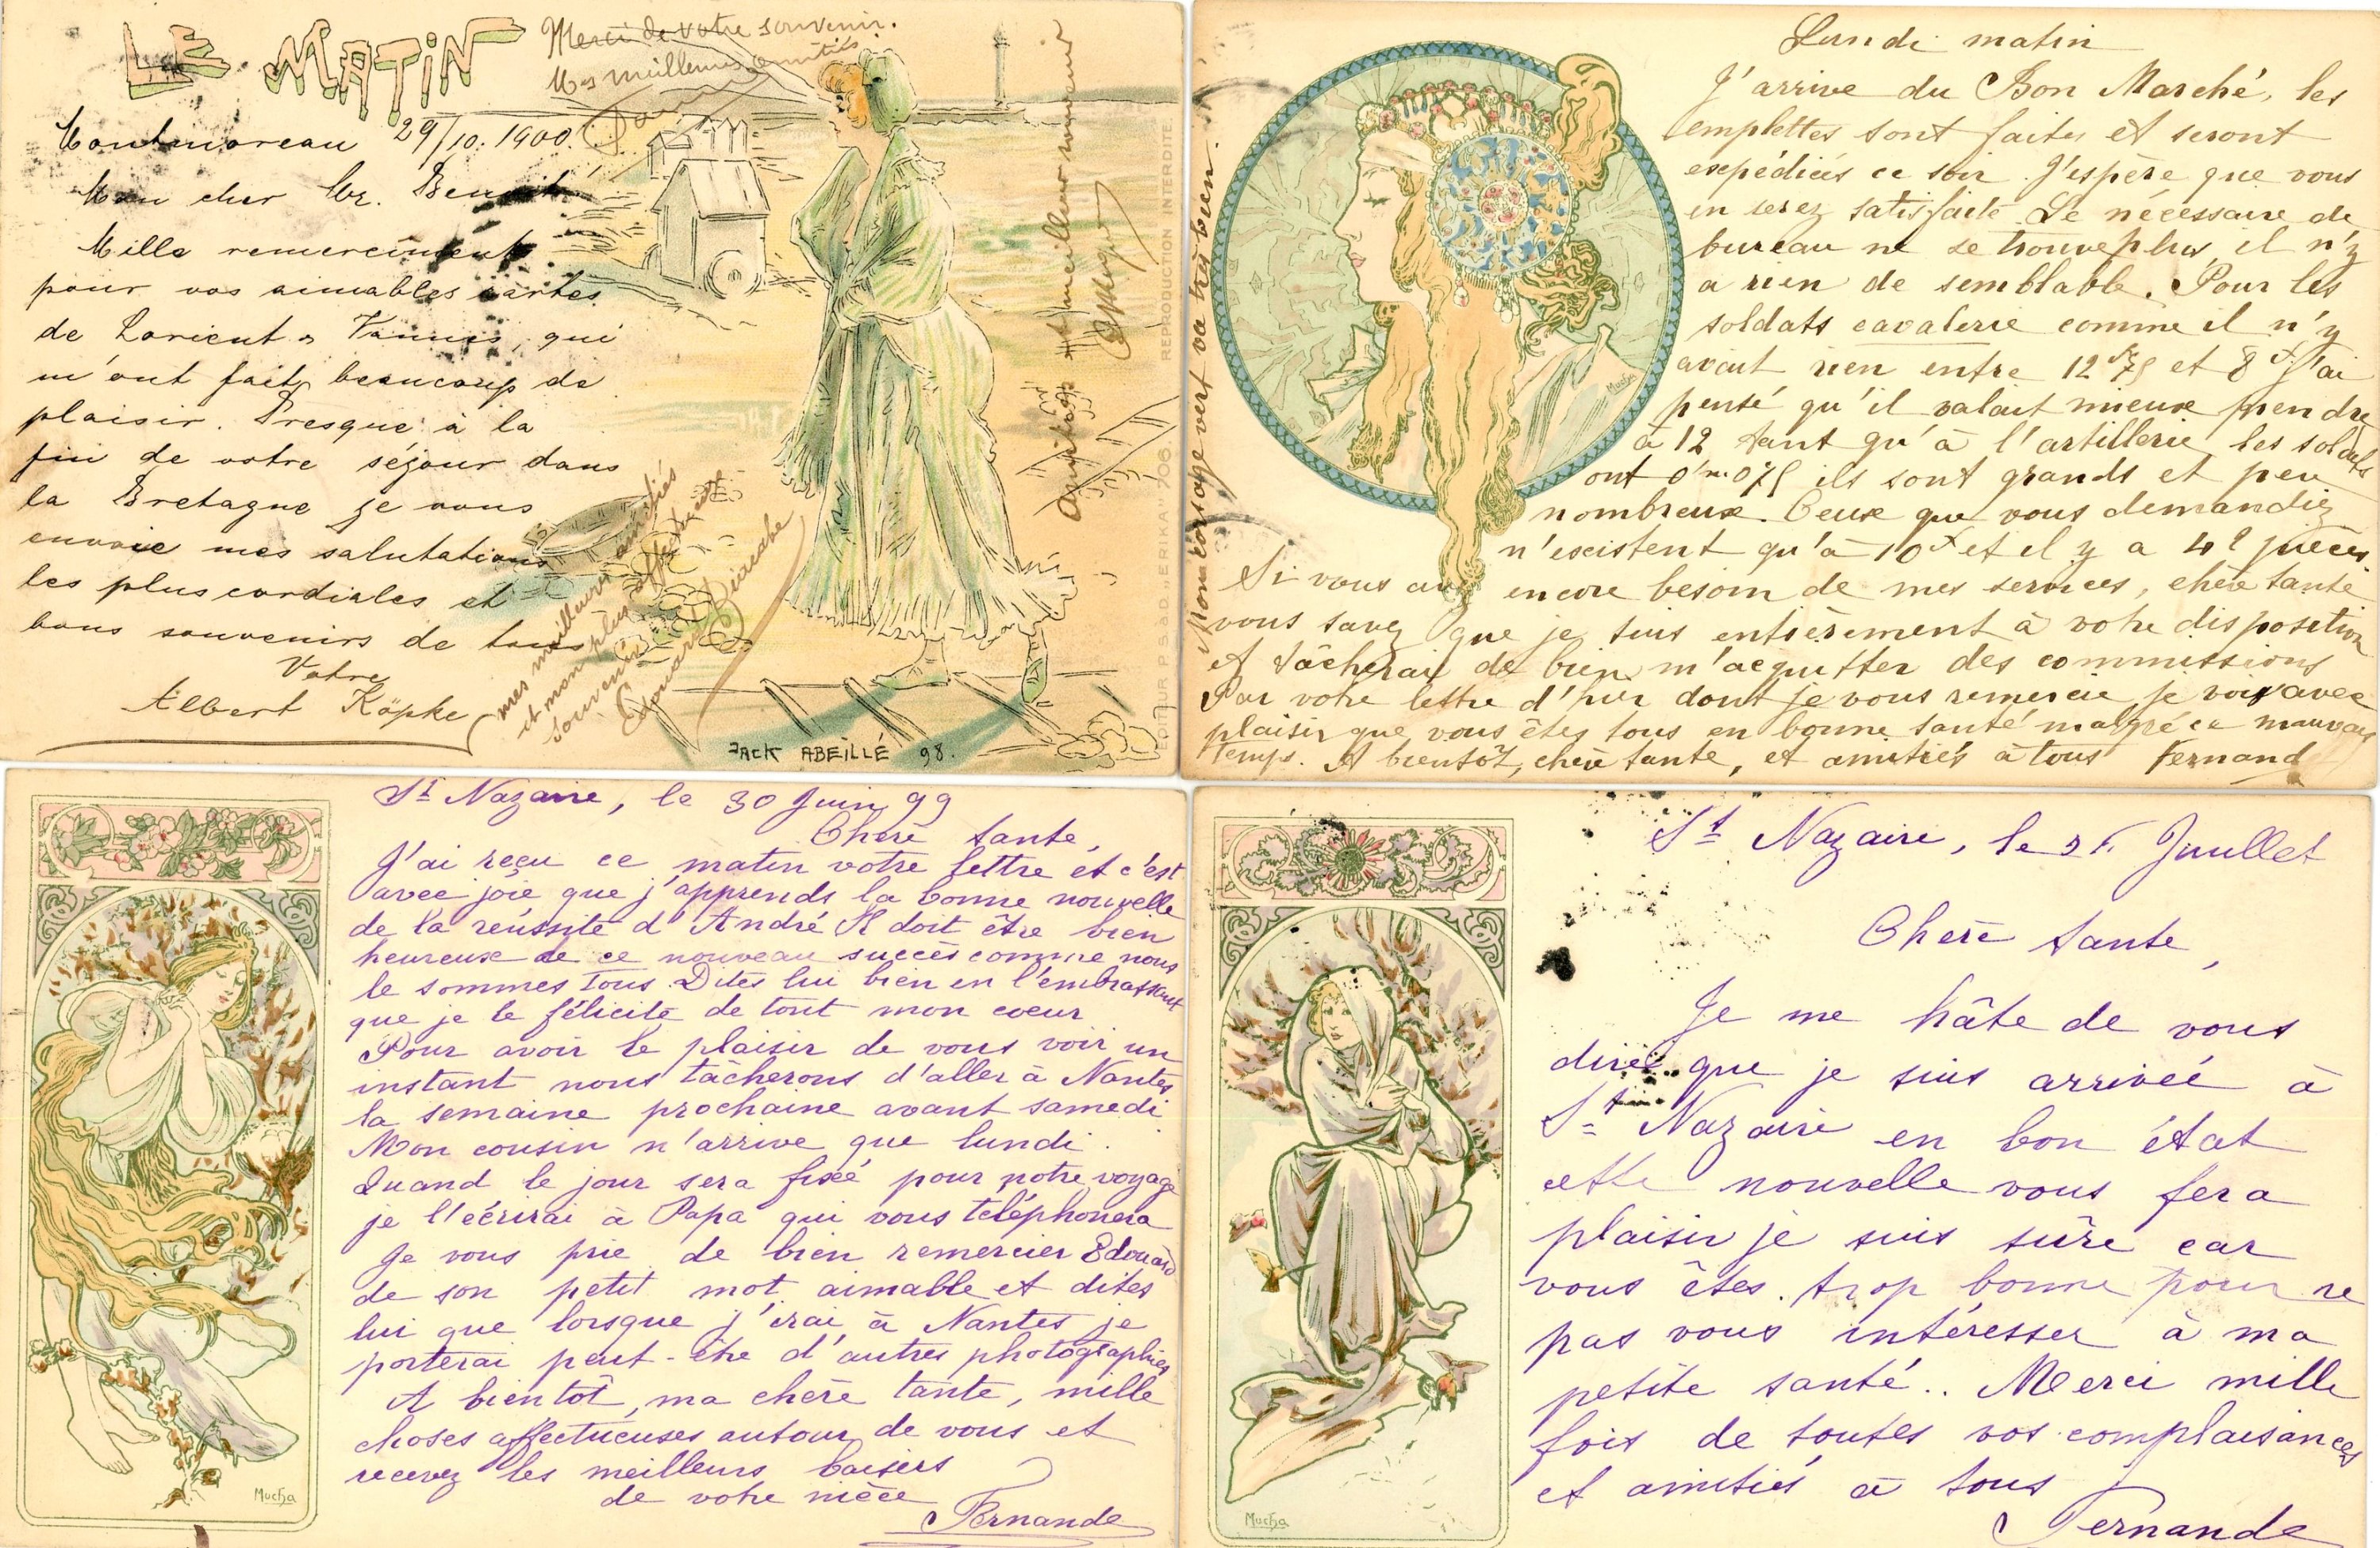 LE MATIN
Merci de votre souvenir.
Mes meilleures amitiés
Montmoreau 29/10. 1900.
Mon cher Mr. Benoit
Mille remerciments
pour vos aimables cartes
de Lorient & Vannes, qui
m'ont fait beaucoup de
plaisir. Presque à la
fin de votre séjour dans
la Bretagne je vous
envoie mes salutations
les plus cordiales et
bons souvenirs de tous
Votre
Albert Köpke
mes meilleures amitiés
et mon plus affectueux
souvenir
Edouard
Amitiés et meilleur souvenir
JACK ABEILLÉ 98.
EDITEUR P.S.a.D. "ERIKA" 706. REPRODUCTION INTERDITE.
Lundi matin
J'arrive du Bon Marché, les
emplettes sont faites et seront
expédiées ce soir. J'espère que vous
en serez satisfaite Le nécessaire de
bureau ne se trouve plus, il n'y
a rien de semblable. Pour les
soldats cavalerie comme il n'y
avait rien entre 12f75 et 8f J'ai
pensé qu'il valait mieux prendre
à 12 tant qu'à l'artillerie les soldats
ont 0m075 ils sont grands et peu
nombreux. Ceux que vous demandiez
n'existent qu'à 10f et il y a 42 pièces
Si vous avez encore besoin de mes services, chère tante
vous savez que je suis entièrement à votre disposition
et tâcherai de bien m'acquitter des commissions
Par votre lettre d'hier dont je vous remercie je vois avec
plaisir que vous êtes tous en bonne santé malgré ce mauvais
temps. A bientôt, chère tante, et amitiés à tous Fernand
Mon corsage vert va très bien.
Mucha
St Nazaire, le 30 Juin 99
Chère tante,
J'ai reçu ce matin votre lettre et c'est
avec joie que j'apprends la bonne nouvelle
de la réussite d'André Il doit être bien
heureux de ce nouveau succès comme nous
le sommes tous. Dites lui bien en l'embrassant
que je le félicite de tout mon coeur
Pour avoir le plaisir de vous voir un
instant nous tâcherons d'aller à Nantes
la semaine prochaine avant samedi
Mon cousin n'arrive que lundi.
Quand le jour sera fixé pour notre voyage
je l'écrirai à Papa qui vous téléphonera
Je vous prie de bien remercier Edouard
de son petit mot aimable et dites
lui que lorsque j'irai à Nantes je
porterai peut-être d'autres photographies
A bientôt, ma chère tante, mille
choses affectueuses autour de vous et
recevez les meilleurs baisers
de votre nièce
Fernande
Mucha
St Nazaire, le Juillet
Chère tante,
Je me hâte de vous
dire que je suis arrivée à
St Nazaire en bon état
cette nouvelle vous fera
plaisir je suis sûre car
vous êtes trop bonne pour ne
pas vous intéresser à ma
petite santé.. Merci mille
fois de toutes vos complaisances
et amitiés à tous
Fernande
Mucha